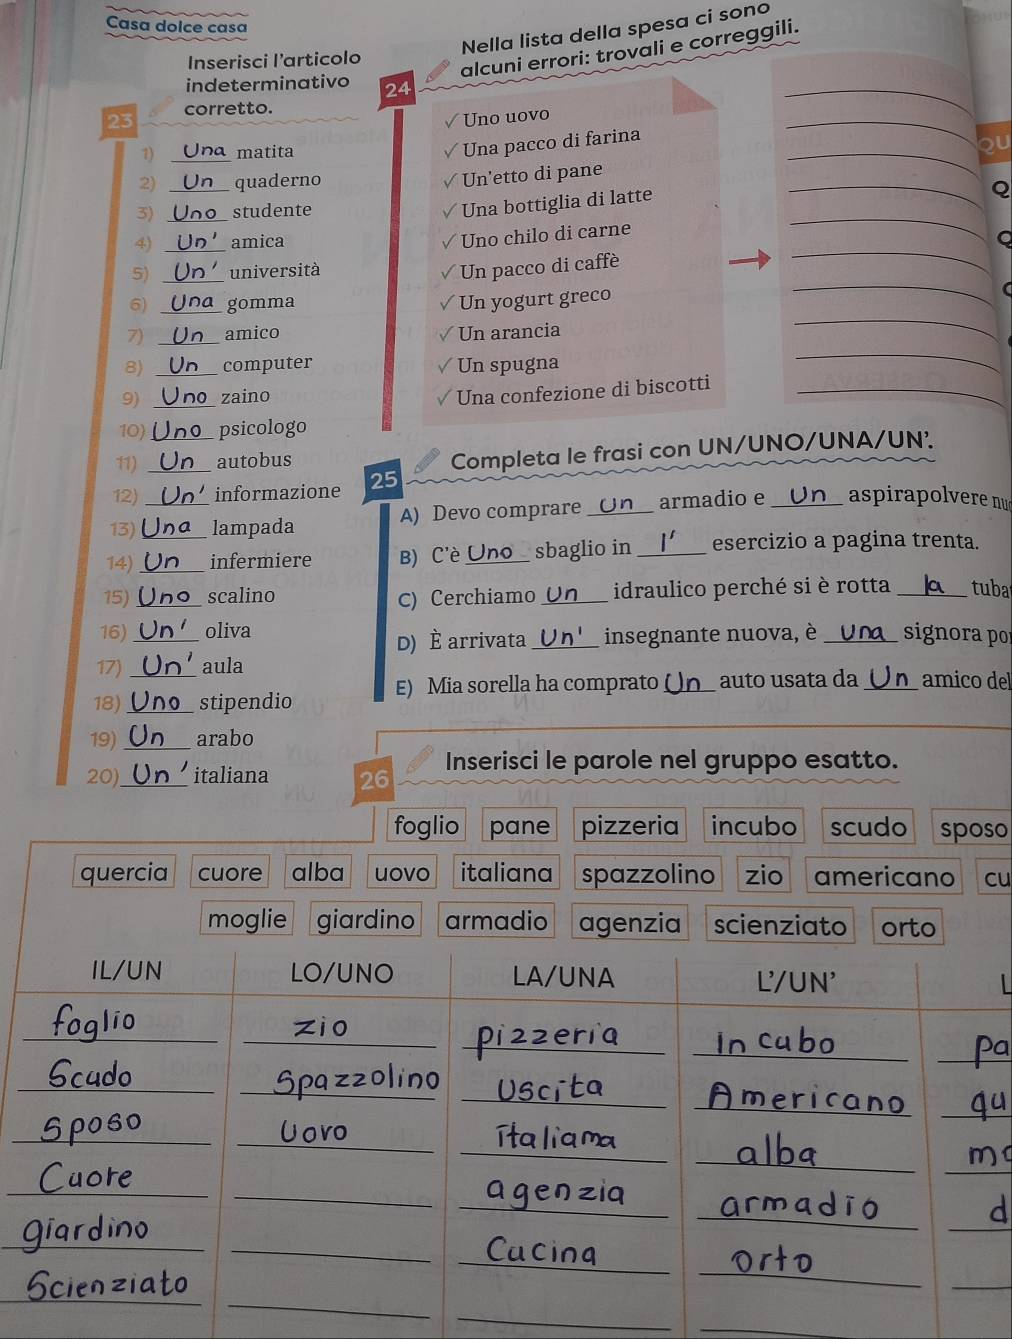 Casa dolce casa
23
Inserisci l'articolo
indeterminativo
corretto.
1) Una matita
2) Un quaderno
3) Uno studente
4) Un' amica
5) Un' università
6) Una gomma
7) Un amico
8) Un computer
9) Uno zaino
10) Uno psicologo
11) Un autobus
12) Un' informazione
13) Una lampada
14) Un infermiere
15) Uno scalino
16) Un' oliva
17) Un' aula
18) Uno stipendio
19) Un arabo
20) Un' italiana
24
Nella lista della spesa ci sono
alcuni errori: trovali e correggili.
✓ Uno uovo
✓ Una pacco di farina
✓ Un'etto di pane
✓ Una bottiglia di latte
✓ Uno chilo di carne
✓ Un pacco di caffè
✓ Un yogurt greco
✓ Un arancia
✓ Un spugna
✓ Una confezione di biscotti
QU
Q
25
Completa le frasi con UN/UNO/UNA/UN'.
A) Devo comprare Un armadio e Un aspirapolvere
B) C'è Uno sbaglio in l' esercizio a pagina trenta.
C) Cerchiamo Un idraulico perché si è rotta la tuba
D) È arrivata Un' insegnante nuova, è Una signora
E) Mia sorella ha comprato Un auto usata da Un amico del
26
Inserisci le parole nel gruppo esatto.
foglio pane pizzeria incubo scudo sposo
quercia cuore alba uovo italiana spazzolino zio americano cu
moglie giardino armadio agenzia scienziato orto
IL/UN LO/UNO LA/UNA L'/UN'
foglio zio pizzeria incubo pa
Scudo Spazzolino Uscita Americano qu
Sposo Uovo italiama alba mo
Cuore agenzia armadio d
giardino Cucina orto
Scienziato